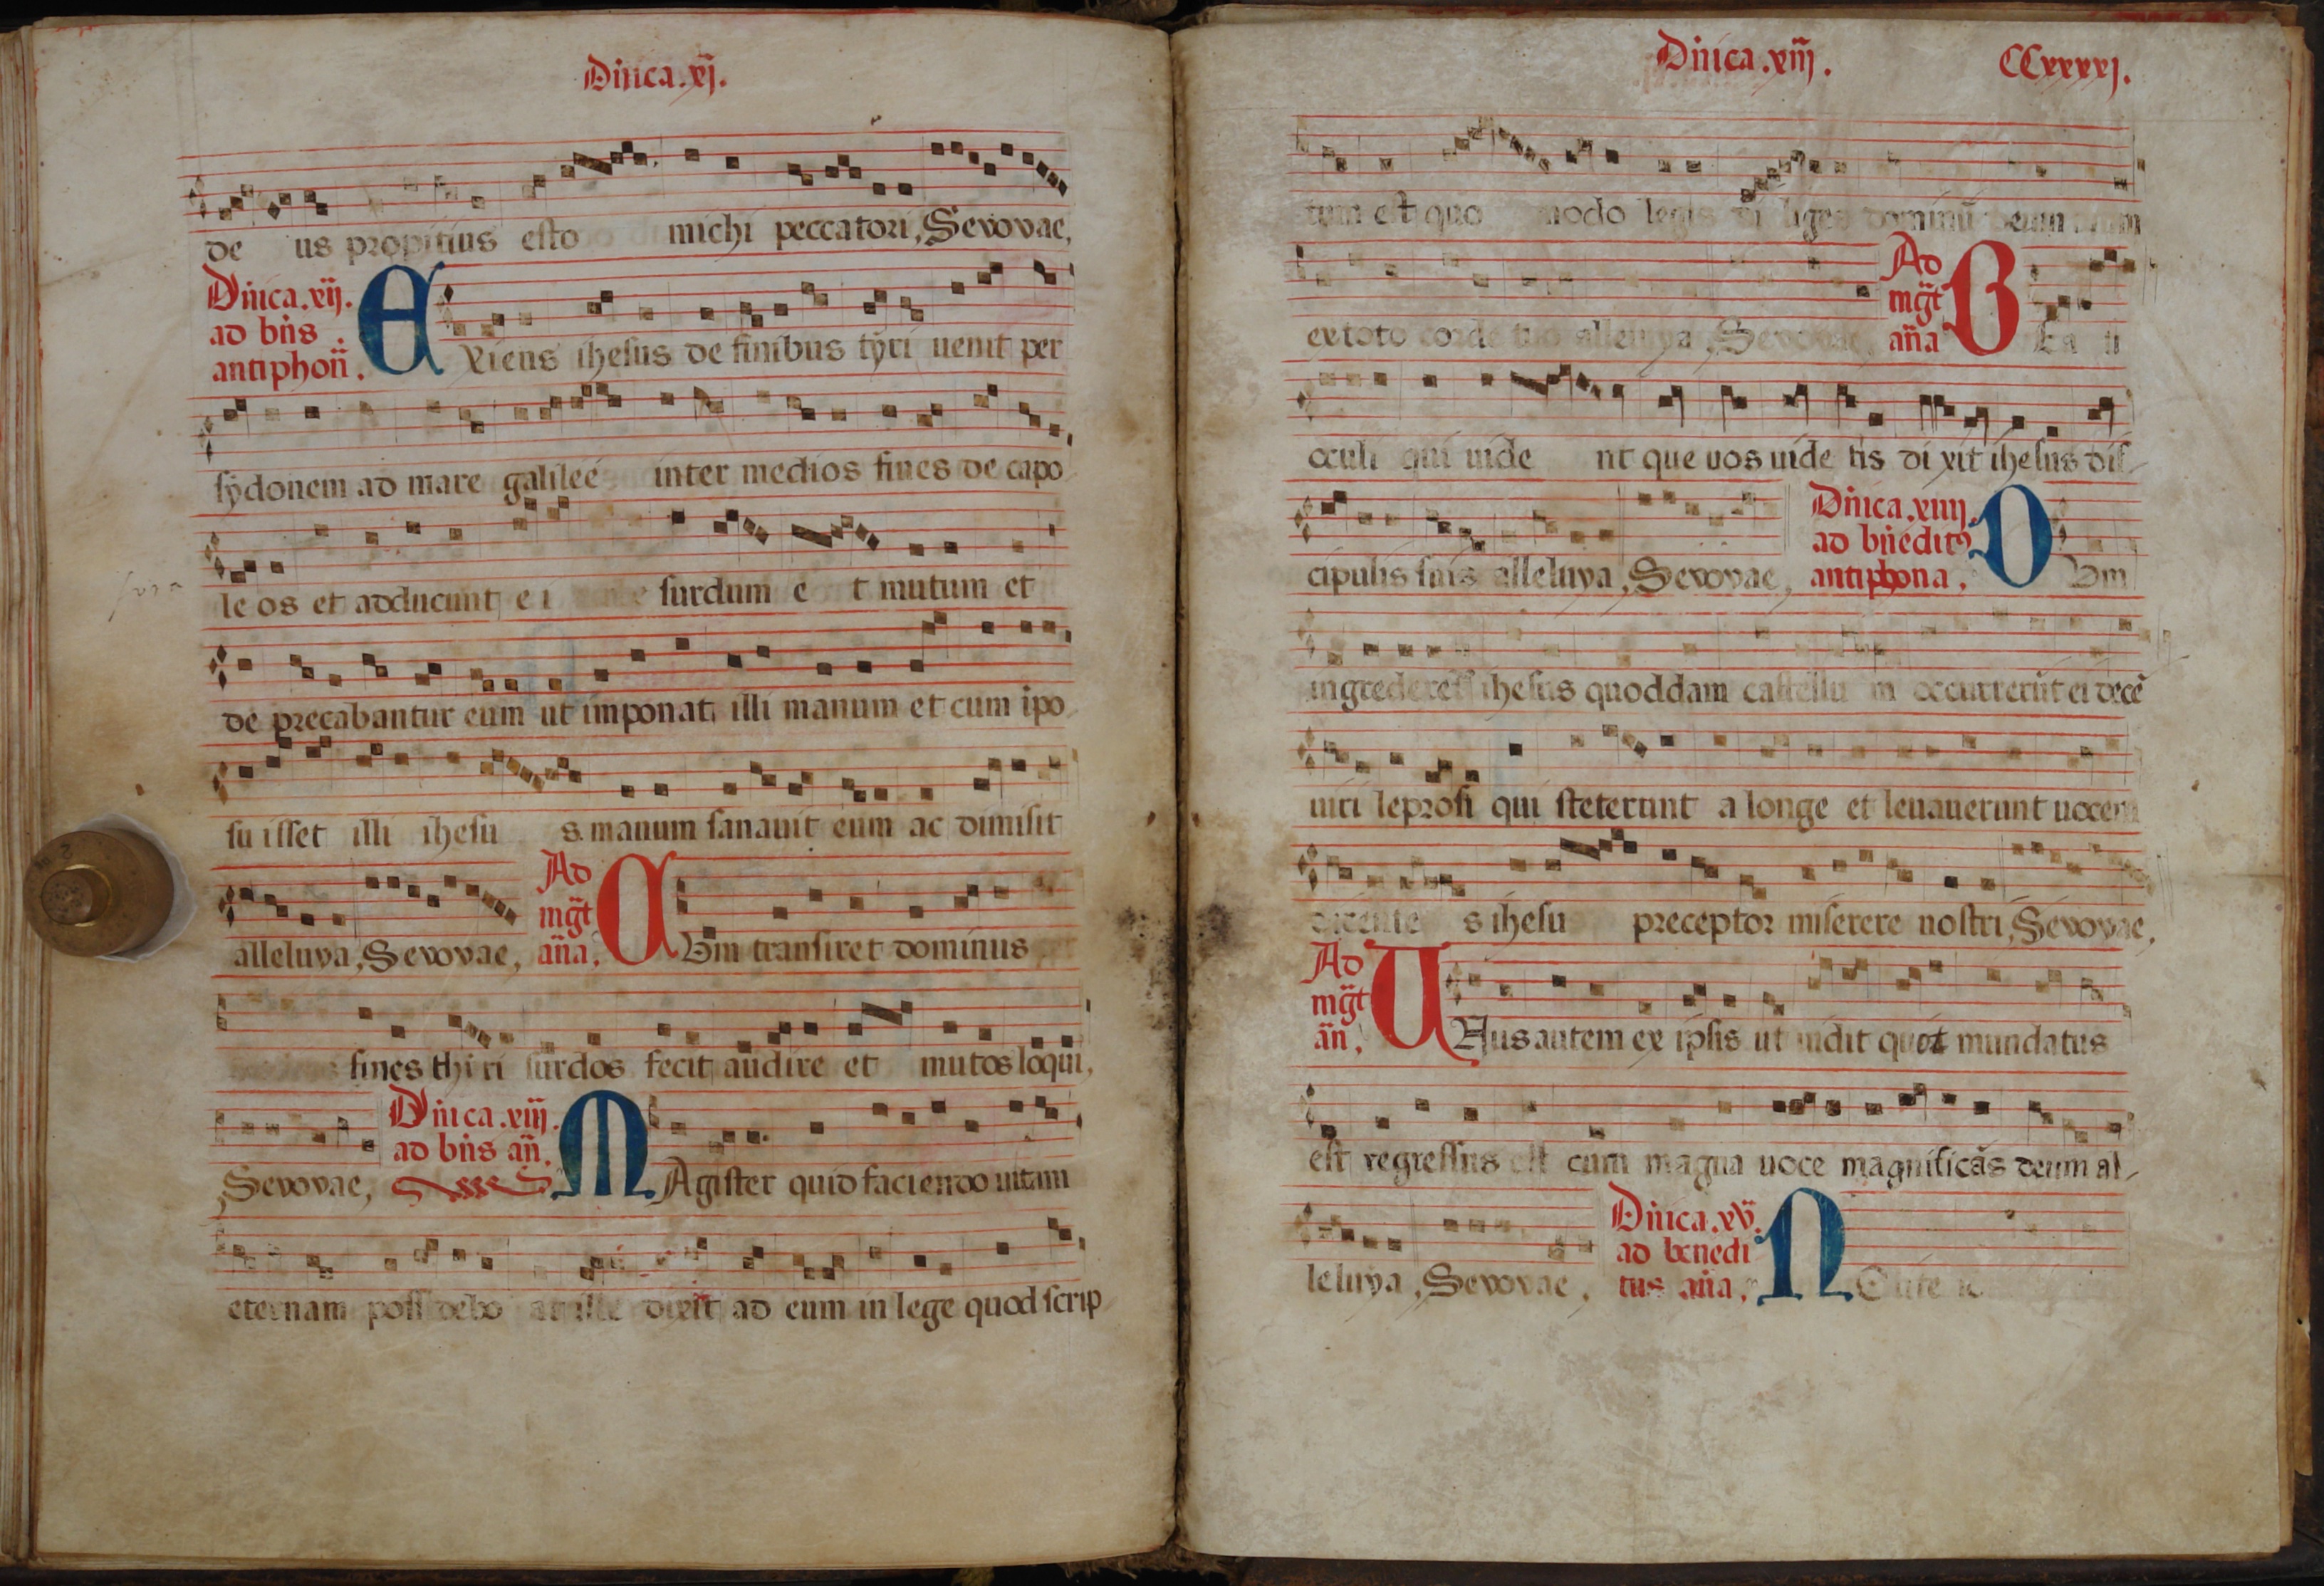 Dn̄ica .xj.
de us propitius esto michi peccatori, Sevovae,
Dn̄ica .xij.
ad bn̄s .
antiphon̄ .
E Xiens ihesus de finibus tyri uenit per
sydonem ad mare galilee inter medios fines de capo
le os et adducunt e i surdum e t mutum et
de precabantur eum ut imponat illi manum et cum ipo
su isset illi ihesu s manum sanauit eum ac dimisit
alleluya, Sevovae,
Ad
mḡt
an̄a,
C Vm transiret dominus
fines thi ri surdos fecit audire et mutos loqui,
Sevovae,
Dn̄ica .xiij.
ad bn̄s an̄.
M Agister quid faciendo uitam
eternam possidebo at ille dixit ad eum in lege quod scrip
Dn̄ica .xiij. CCxxxxj.
tum est quo modo legis di liges dominū deum tuum
ex toto corde tuo alleluya, Sevovae,
Ad
mḡt
an̄a
B Ea ti
oculi qui uide nt que uos uide tis di xit ihesus dis-
cipulis suis alleluya, Sevovae,
Dn̄ica .xiiij.
ad bn̄edit9
antiphona .
C Vm
ingrederet ihesus quoddam castellu m occurrerūt ei decē
uiri leprosi qui steterunt a longe et leuauerunt uocem
dicente s ihesu preceptor miserere nostri, Sevovae,
Ad
mḡt
an̄,
U Nus autem ex ipsis ut uidit quot mundatus
est regressus est cum magna uoce magnificās deum al-
leluya, Sevovae,
Dn̄ica .xv.
ad benedi
tus an̄a,
N Olite